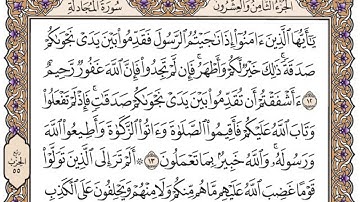 الجزء الثامن والعشرون سورة المجادلة
يَٰٓأَيُّهَا ٱلَّذِينَ ءَامَنُوٓاْ إِذَا نَٰجَيْتُمُ ٱلرَّسُولَ فَقَدِّمُواْ بَيْنَ يَدَىْ نَجْوَىٰكُمْ
صَدَقَةً ۚ ذَٰلِكَ خَيْرٌ لَّكُمْ وَأَطْهَرُ ۚ فَإِن لَّمْ تَجِدُواْ فَإِنَّ ٱللَّهَ غَفُورٌ رَّحِيمٌ
١٢ ءَأَشْفَقْتُمْ أَن تُقَدِّمُواْ بَيْنَ يَدَىْ نَجْوَىٰكُمْ صَدَقَٰتٍ ۚ فَإِذْ لَمْ تَفْعَلُواْ
وَتَابَ ٱللَّهُ عَلَيْكُمْ فَأَقِيمُواْ ٱلصَّلَوٰةَ وَءَاتُواْ ٱلزَّكَوٰةَ وَأَطِيعُواْ ٱللَّهَ
وَرَسُولَهُۥ ۚ وَٱللَّهُ خَبِيرٌۢ بِمَا تَعْمَلُونَ ١٣ ۞ أَلَمْ تَرَ إِلَى ٱلَّذِينَ تَوَلَّوْاْ
قَوْمًا غَضِبَ ٱللَّهُ عَلَيْهِم مَّا هُم مِّنكُمْ وَلَا مِنْهُمْ وَيَحْلِفُونَ عَلَى ٱلْكَذِبِ
ربع
الحزب
٥٥